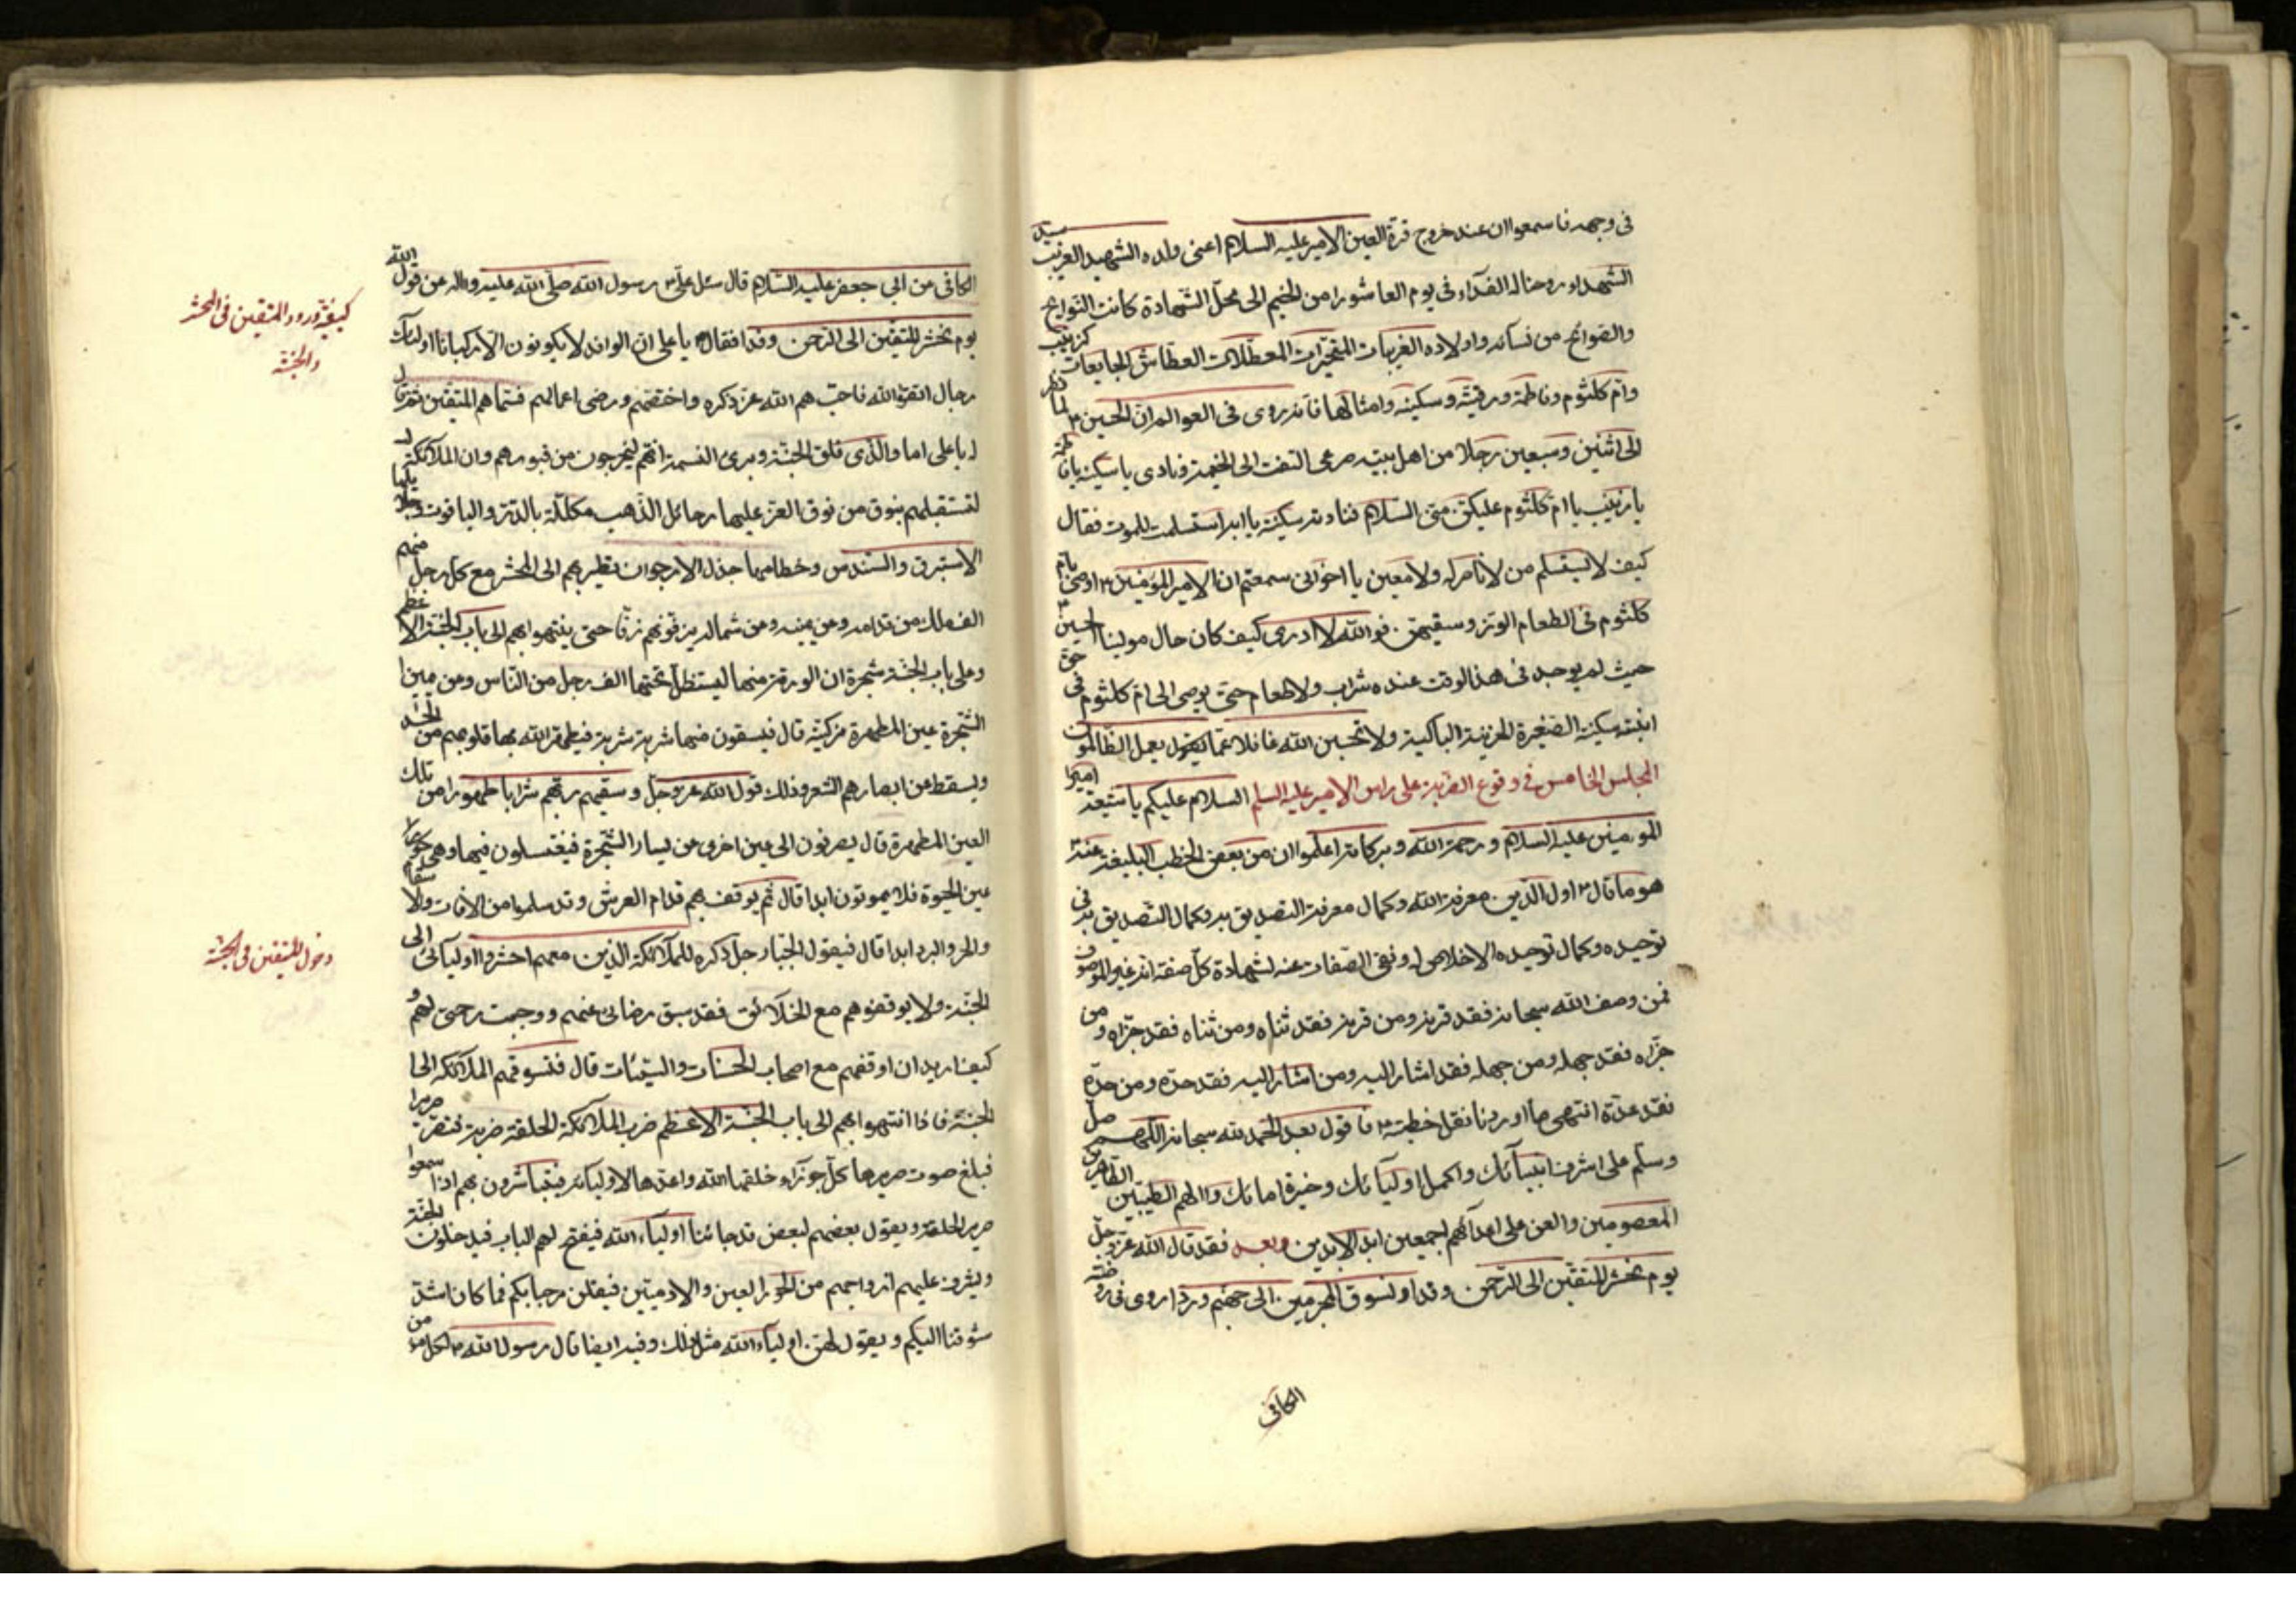 فى وجهه فاسمعوا ان عند خروج قرة العين الامير عليه السلام اعنى ولده الشهيد الغريب سيد
الشهداء روحنا له الفداء فى يوم العاشورا من الخيم الى محل الشهادة كانت النوايح
والصوائح من نسائه واولاده الغريبات المتحيرات المعطلات العطاش الجايعات كزينب
وام كلثوم وفاطمة ورقية وسكينة وامثالها فانه روى فى العوالم ان الحسين ٣ لما نظر
الى اثنين وسبعين رجلا من اهل بيته صرعى التفت الى الخيمة ونادى يا سكينة يا فاطمة
يا زينب يا ام كلثوم عليكن منى السلام فنادته سكينة يا ابه استسلمت للموت فقال
كيف لا يستسلم من لا ناصر له ولا معين يا اخوانى سمعتم ان الامير المؤمنين ٣ اوصى بام
كلثوم فى الطعام الوز وسقيهن فوالله لا ادرى كيف كان حال مولينا الحسين ٣
حيث لم يوجد فى هذا الوقت عنده شراب ولا طعام حتى يوصى الى ام كلثوم فى حق
ابنته سكينة الصغيرة الحزينة الباكية ولا تحسبن الله غافلا عما يعمل الظالمون
المجلس الخامس فى وقوع الضربة على راس الامير عليه السلم السلام عليكم يا شيعة امير
المومنين عليه السلام ورحمة الله وبركاته اعلموا ان من بعض الخطب البليغة عنه
هو ما قال ٣ اول الدين معرفة الله وكمال معرفته التصديق به وكمال التصديق به
توحيده وكمال توحيده الاخلاص له ونفى الصفات عنه لشهادة كل صفة انه غير الموصوف
فمن وصف الله سبحانه فقد قرنه ومن قرنه فقد ثناه ومن ثناه فقد جزاه ومن
جزاه فقد جهله ومن جهله فقد اشار اليه ومن اشار اليه فقد حده ومن حده
فقد عده انتهى ما اوردنا نقل خطبته ٣ فاقول بعد الحمد لله سبحانه اللهم صل
وسلم على اشرف انبيائك واكمل اوليائك وخيرة امنائك واالهم الطيبين الطاهرين
المعصومين والعن على اعدائهم اجمعين ابد الابدين وبعد فقد قال الله عز وجل
يوم نحشر المتقين الى الرحمن وفدا ونسوق المجرمين الى جهنم وردا روى فى روضة
الكافى
الكافى عن ابى جعفر عليه السلام قال سئل على ٣ رسول الله صلى الله عليه واله عن قول الله
يوم نحشر المتقين الى الرحمن وفدا فقال يا على ان الوفد لا يكونون الا ركبانا اولئك
رجال اتقوا الله فاحبهم الله عز ذكره واختصهم ورضى اعمالهم فسماهم المتقين ثم قال
له يا على اما والذى فلق الحبة وبرئ النسمة انهم ليخرجون من قبورهم وان الملائكة
لتستقبلهم بنوق من نوق العز عليها رحائل الذهب مكللة بالدر والياقوت وجلائلها
الاستبرق والسندس وخطامها جذل الارجوان تطير بهم الى المحشر مع كل رجل منهم
الف ملك من قدامه وعن يمينه وعن شماله يزفونهم زفا حتى ينتهوا بهم الى باب الجنة الاعظم
وعلى باب الجنة شجرة ان الورقة منها ليستظل تحتها الف رجل من الناس وعن يمين
الشجرة عين المطهرة مزكية قال فيسقون منها شربة شربة فيطهر الله بها قلوبهم من الحسد
ويسقط عن ابصارهم الشعر وذلك قول الله عز وجل وسقيهم ربهم شرابا طهورا من تلك
العين المطهرة قال يصرفون الى عين اخرى عن يسار الشجرة فيغتسلون فيها وهى
عين الحيوة فلا يموتون ابدا قال ثم يوقف بهم قدام العرش وقد سلموا من الافات والاسقام
والحر والبرد ابدا قال فيقول الجبار جل ذكره للملائكة الذين معهم احشروا اوليائى الى
الجنة ولا يوقفوهم مع الخلائق فقد سبق رضائى عنهم ووجبت رحمتى لهم و
كيف اريد ان اوقفهم مع اصحاب الحسنات والسيئات قال فتسوقهم الملائكة الى
الجنة فاذا انتهوا بهم الى باب الجنة الاعظم ضرب الملائكة الحلقة ضربة فتصر صريرا
فبلغ صوت صريرها كل حوراء خلقها الله واعدها لاوليائه فيتباشرون بهم اذا سمعوا
صرير الحلقة ويقول بعضهم لبعض قد جائنا اولياء الله فيفتح لهم الباب فيدخلون الجنة
ويشرف عليهم ازواجهم من الحور العين والادميين فيقلن مرحبا بكم فما كان اشد
شوقنا اليكم ويقول لهن اولياء الله مثل ذلك وفيه ايضا قال رسول الله ٣ لكل
كيفية ورود المتقين فى المحشر
والجنة
دخول المتقين فى الجنة